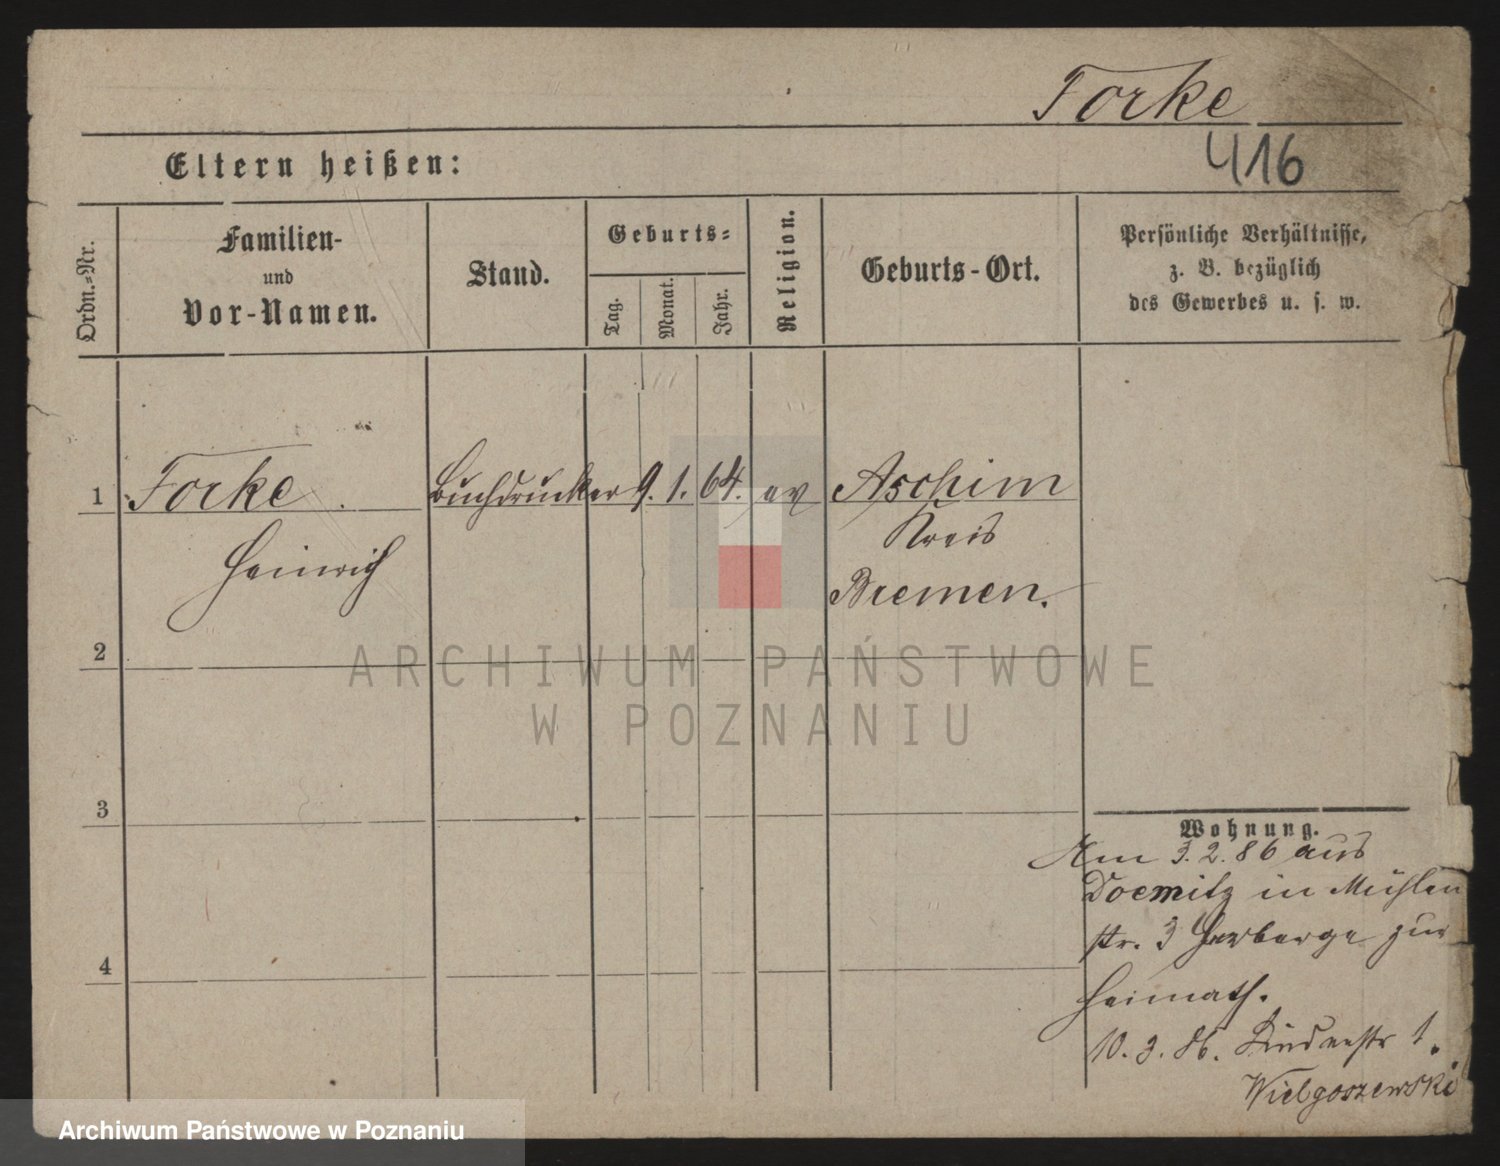 Forke
416
Eltern heißen:
Ordn.-Nr.
Familien-
und
Vor-Namen.
Stand.
Geburts-
Tag.
Monat.
Jahr.
Religion.
Geburts-Ort.
Persönliche Verhältnisse,
z. B. bezüglich
des Gewerbes u. s. w.
1 Forke. Buchdrucker 9. 1. 64. ev Aschim
Heinrich
Kreis
Bremen.
2
3
4
Wohnung.
Am 3.2.86 aus
Doemitz in Mühlen
str. 3 Herberge zur
Heimath.
10.3.86. 1.
Wielgoszewski
ARCHIWUM PAŃSTWOWE
W POZNANIU
Archiwum Państwowe w Poznaniu